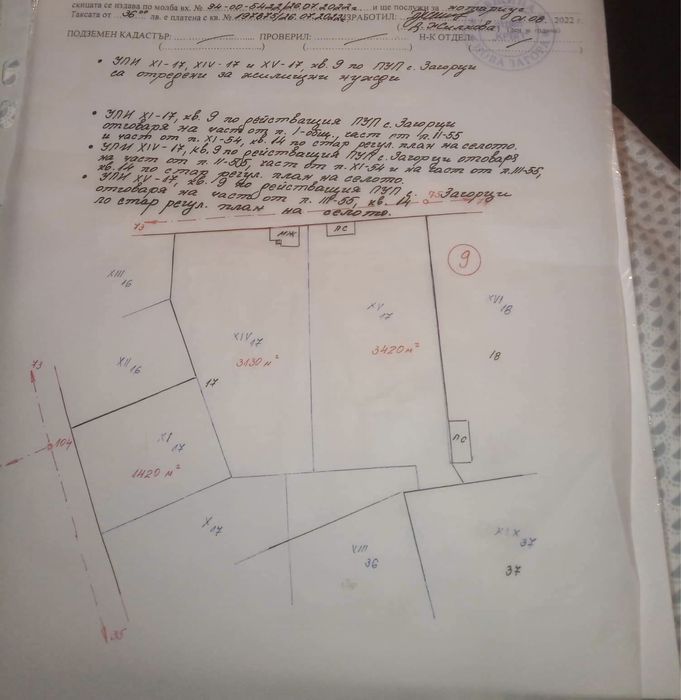 скицата се издава по молба вх. № 94-00-5422/26.07.2022г. и ще послужи за нотариус
Таксата от 36.00 лв. е платена с кв. № 197875/26.07.2022г. ИЗРАБОТИЛ: 01.08. 2022 г.
Д. Жилкова
ПОДЗЕМЕН КАДАСТЪР: ПРОВЕРИЛ: Н-К ОТДЕЛ:
• УПИ XI-17, XIV-17 и XV-17, кв. 9 по ПУП с. Загорци
са отредени за жилищни нужди
• УПИ XI-17, кв. 9 по действащия ПУП с. Загорци
отговаря на част от п. I-общ., част от п. II-55
и част от п. XI-54, кв. 14 по стар регул. план на селото.
• УПИ XIV-17, кв. 9 по действащия ПУП с. Загорци отговаря
на част от п. II-55, част от п. XI-54 и на част от п. III-55,
кв. 14 по стар регул. план на селото.
• УПИ XV-17, кв. 9 по действащия ПУП с. Загорци
отговаря на част от п. III-55, кв. 14
по стар регул. план на селото.
75
73
МЖ
ПС
9
XIII 16
XVI 18
XIV 17
XV 17
3130 м²
3420 м²
18
73
XII 16
17
ПС
104
XI 17
1420 м²
X 17
VIII 36
XIX 37
37
35